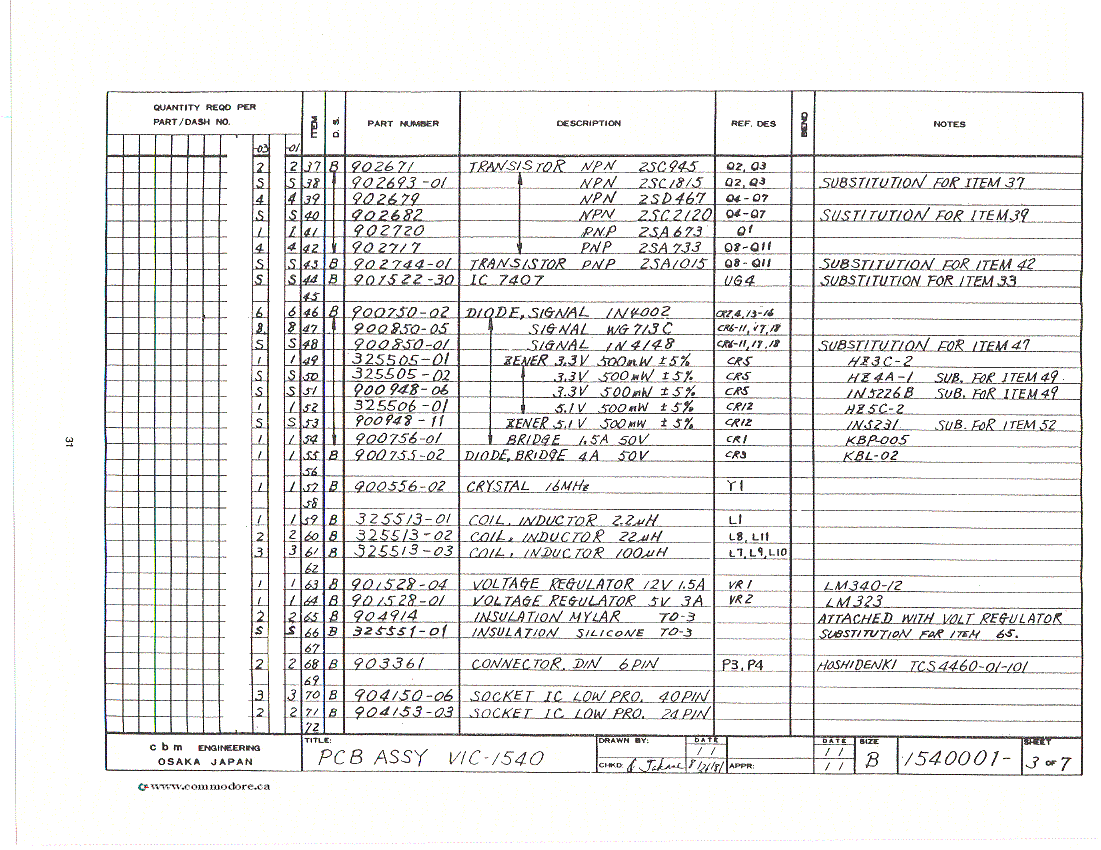 QUANTITY REQD PER
PART/DASH NO.
-03 -01 ITEM D. S. PART NUMBER DESCRIPTION REF. DES BEND NOTES
2 2 37 B 902671 TRANSISTOR NPN 2SC945 Q2, Q3
S S 38 902693-01 NPN 2SC1815 Q2, Q3 SUBSTITUTION FOR ITEM 37
4 4 39 902679 NPN 2SD467 Q4-Q7
S S 40 902682 NPN 2SC2120 Q4-Q7 SUSTITUTION FOR ITEM 39
1 1 41 902720 PNP 2SA673 Q1
4 4 42 902717 PNP 2SA733 Q8-Q11
S S 43 B 902744-01 TRANSISTOR PNP 2SA1015 Q8-Q11 SUBSTITUTION FOR ITEM 42
S S 44 B 901522-30 IC 7407 UG4 SUBSTITUTION FOR ITEM 33
45
6 6 46 B 900750-02 DIODE, SIGNAL 1N4002 CR2,4,13-16
8 8 47 900850-05 SIGNAL WG713C CR6-11,17,18
S S 48 900850-01 SIGNAL 1N4148 CR6-11,17,18 SUBSTITUTION FOR ITEM 47
1 1 49 325505-01 ZENER 3.3V 500mW ±5% CR5 HZ3C-2
S S 50 325505-02 3.3V 500mW ±5% CR5 HZ4A-1 SUB. FOR ITEM 49
S S 51 900948-06 3.3V 500mW ±5% CR5 1N5226B SUB. FOR ITEM 49
1 1 52 325506-01 5.1V 500mW ±5% CR12 HZ5C-2
S S 53 900948-11 ZENER 5.1V 500mW ±5% CR12 1N5231 SUB. FOR ITEM 52
1 1 54 900756-01 BRIDGE 1.5A 50V CR1 KBP-005
1 1 55 B 900755-02 DIODE, BRIDGE 4A 50V CR3 KBL-02
56
1 1 57 B 900556-02 CRYSTAL 16MHz Y1
58
1 1 59 B 325513-01 COIL, INDUCTOR 2.2μH L1
2 2 60 B 325513-02 COIL, INDUCTOR 22μH L8, L11
3 3 61 B 325513-03 COIL, INDUCTOR 100μH L7, L9, L10
62
1 1 63 B 901528-04 VOLTAGE REGULATOR 12V 1.5A VR1 LM340-12
1 1 64 B 901528-01 VOLTAGE REGULATOR 5V 3A VR2 LM323
2 2 65 B 904914 INSULATION MYLAR TO-3 ATTACHED WITH VOLT REGULATOR
S S 66 B 325551-01 INSULATION SILICONE TO-3 SUBSTITUTION FOR ITEM 65.
67
2 2 68 B 903361 CONNECTOR, DIN 6PIN P3, P4 HOSHIDENKI TCS4460-01-101
69
3 3 70 B 904150-06 SOCKET IC LOW PRO. 40PIN
2 2 71 B 904153-03 SOCKET IC LOW PRO. 24PIN
72
31
cbm ENGINEERING
OSAKA JAPAN
TITLE:
PCB ASSY VIC-1540
DRAWN BY: DATE / /
CHKD: 8/26/81 APPR:
DATE / / / /
SIZE B
1540001-
SHEET 3 OF 7
©www.commodore.ca